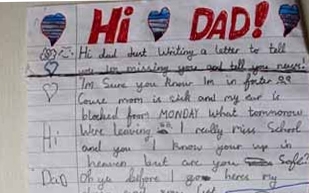 Hi DAD!
Hi dad Just Writing a letter to tell
you Im missing you and tell you news!
I'm Sure you know Im in foster as
Couse mom is sick and my ear is
blocked from MONDAY What tommorow
Hi Were leaving I really miss School
and you I know your up in
heaven but are you Safe?
Dad Oh ya before I go heres my